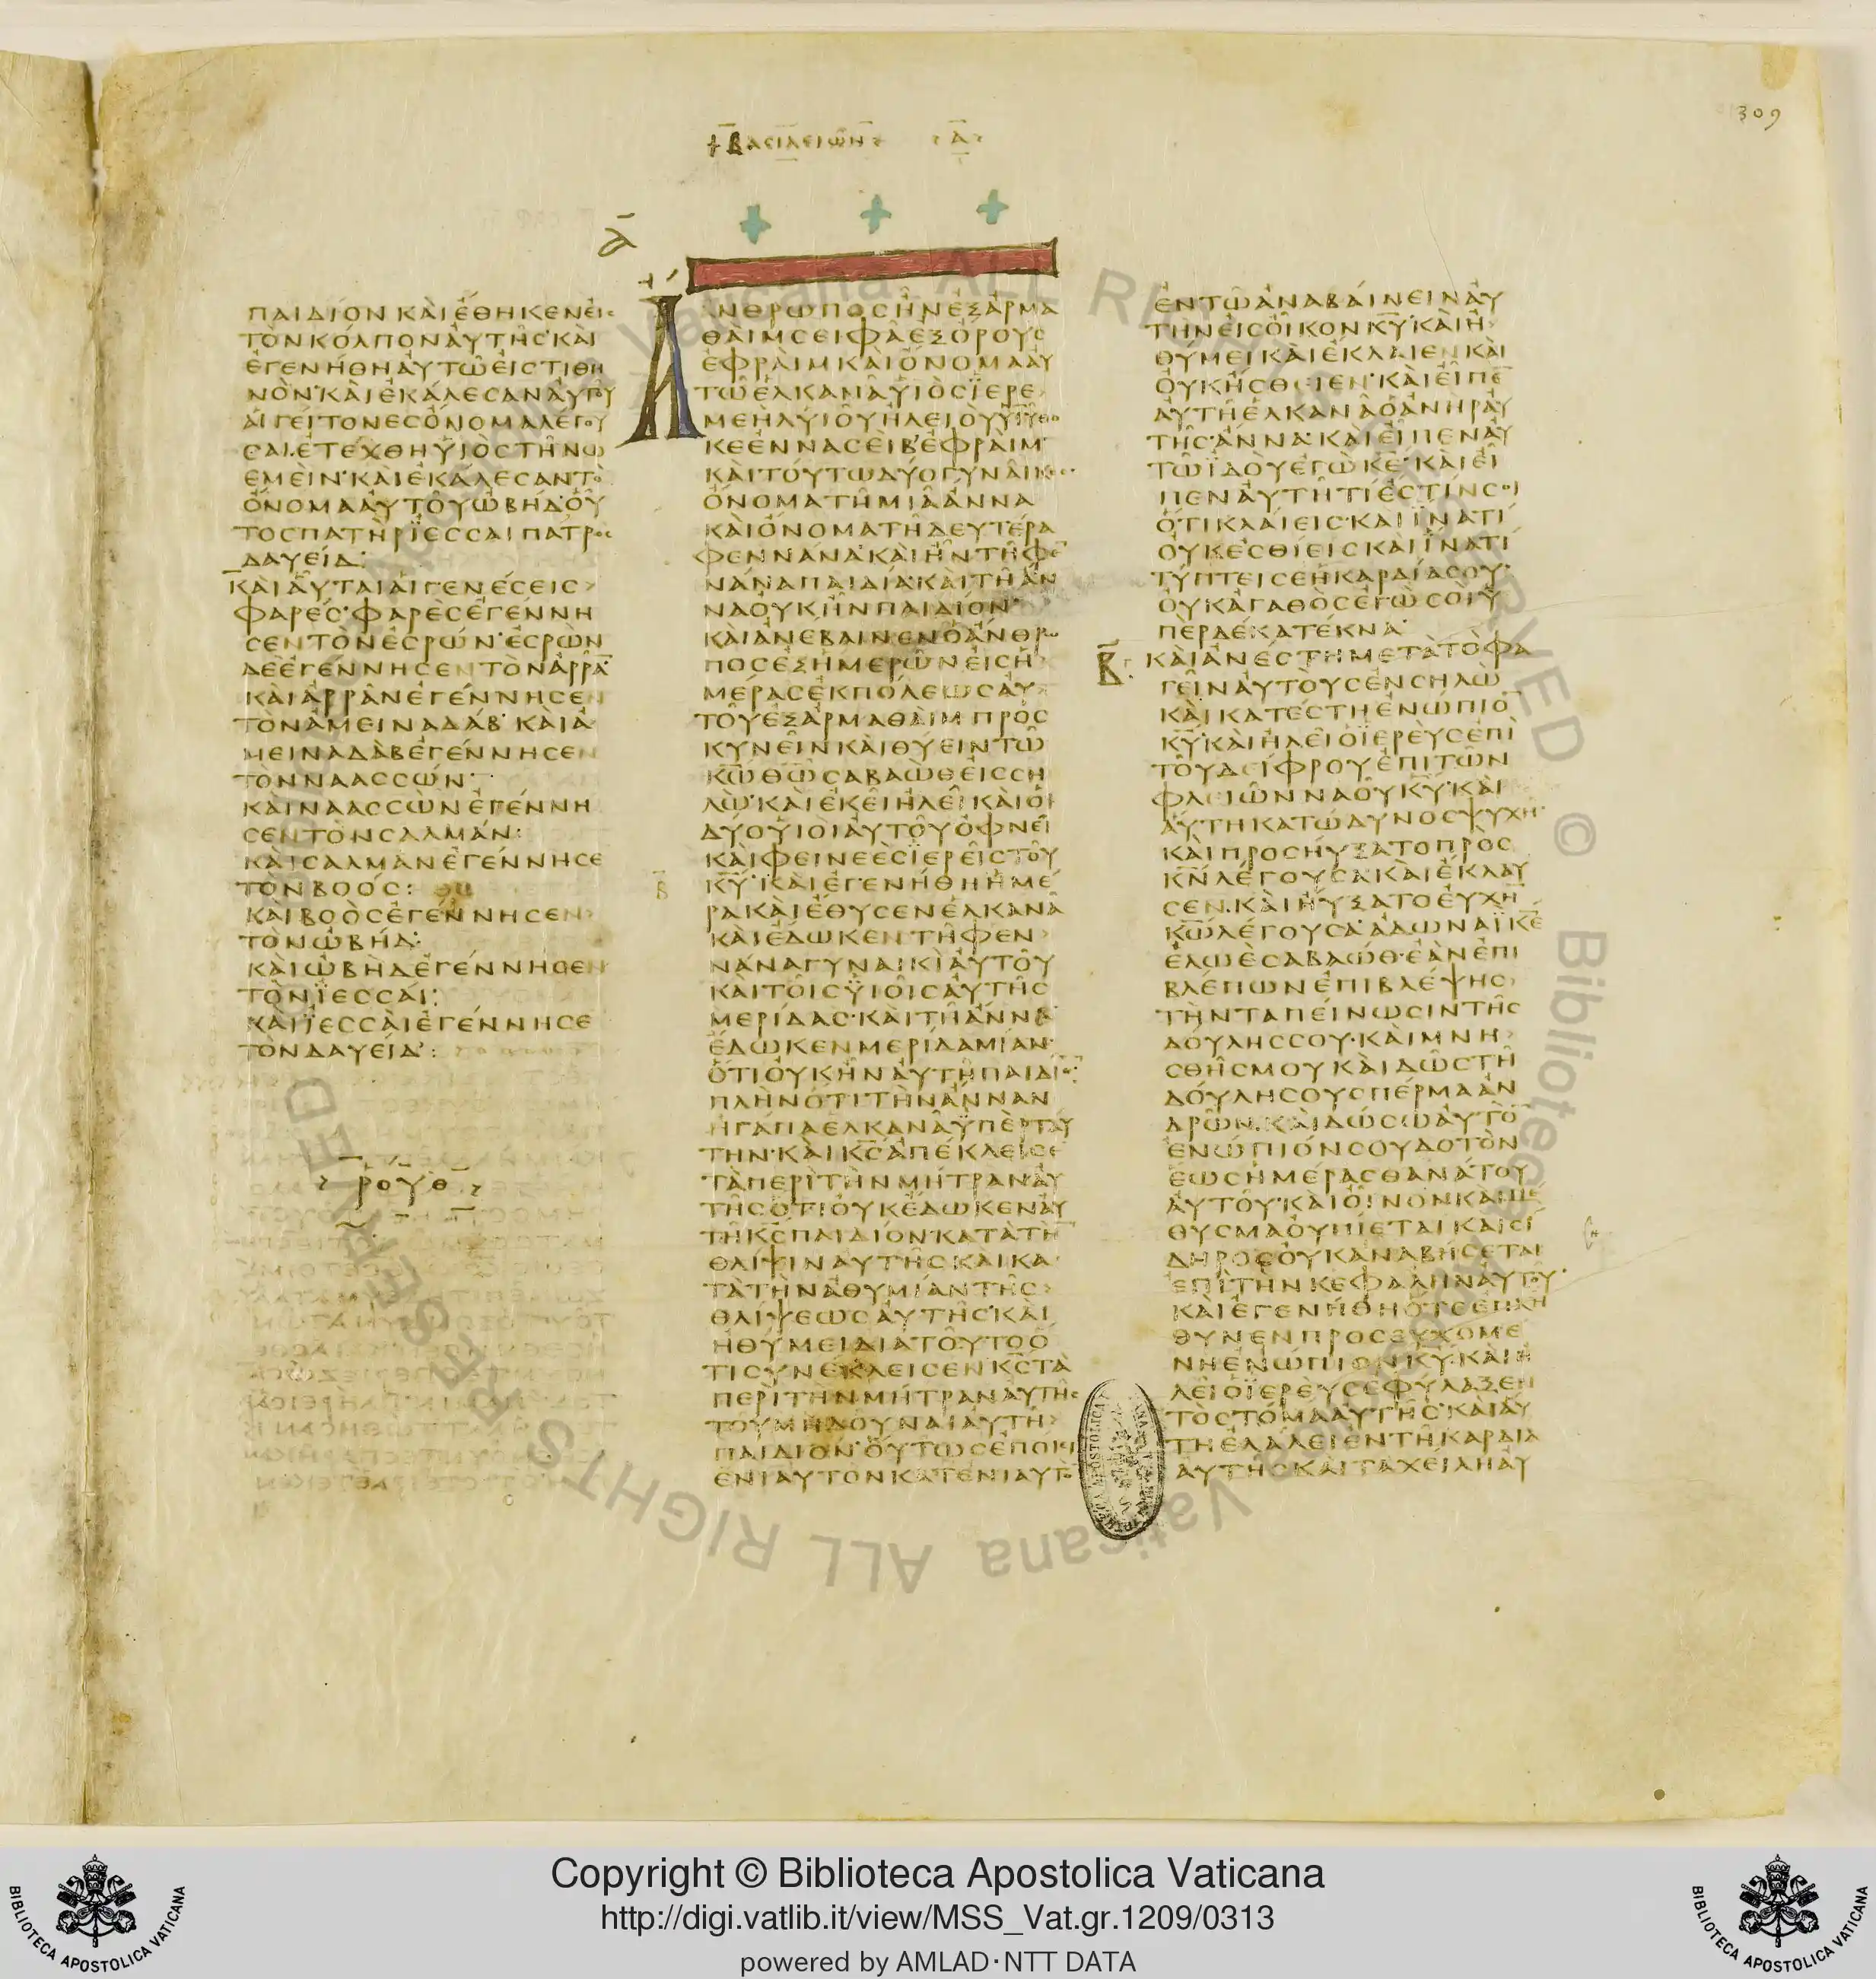 309
ΒΑCΙΛΕΙΩΝ Α
Α
ΠΑΙΔΙΟΝ ΚΑΙ ΕΘΗΚΕΝ ΕΙC
ΤΟΝ ΚΟΛΠΟΝ ΑΥΤΗC ΚΑΙ
ΕΓΕΝΗΘΗ ΑΥΤΩ ΕΙC ΤΙΘΗ
ΝΟΝ ΚΑΙ ΕΚΑΛΕCΑΝ ΑΥΤΟΥ
ΑΙ ΓΕΙΤΟΝΕC ΟΝΟΜΑ ΛΕΓΟΥ
CΑΙ ΕΤΕΧΘΗ ΥΙΟC ΤΗ ΝΩ
ΕΜΕΙΝ ΚΑΙ ΕΚΑΛΕCΑΝ ΤΟ
ΟΝΟΜΑ ΑΥΤΟΥ ΩΒΗΔ ΟΥ
ΤΟC ΠΑΤΗΡ ΙΕCCΑΙ ΠΑΤΡΟC
ΔΑΥΕΙΔ:
ΚΑΙ ΑΥΤΑΙ ΑΙ ΓΕΝΕCΕΙC
ΦΑΡΕC ΦΑΡΕC ΕΓΕΝΝΗ
CΕΝ ΤΟΝ ΕCΡΩΝ ΕCΡΩΝ
ΔΕ ΕΓΕΝΝΗCΕΝ ΤΟΝ ΑΡΡΑ̅
ΚΑΙ ΑΡΡΑΝ ΕΓΕΝΝΗCΕΝ
ΤΟΝ ΑΜΕΙΝΑΔΑΒ ΚΑΙ Α
ΜΕΙΝΑΔΑΒ ΕΓΕΝΝΗCΕΝ
ΤΟΝ ΝΑΑCCΩΝ
ΚΑΙ ΝΑΑCCΩΝ ΕΓΕΝΝΗ
CΕΝ ΤΟΝ CΑΛΜΑΝ:
ΚΑΙ CΑΛΜΑΝ ΕΓΕΝΝΗCΕ
ΤΟΝ ΒΟΟC:
ΚΑΙ ΒΟΟC ΕΓΕΝΝΗCΕΝ
ΤΟΝ ΩΒΗΔ:
ΚΑΙ ΩΒΗΔ ΕΓΕΝΝΗCΕΝ
ΤΟΝ ΙΕCCΑΙ:
ΚΑΙ ΙΕCCΑΙ ΕΓΕΝΝΗCΕ
ΤΟΝ ΔΑΥΕΙΔ:
ΡΟΥΘ
ΑΝΘΡΩΠΟC ΗΝ ΕΞ ΑΡΜΑ
ΘΑΙΜ CΕΙΦΑ ΕΞ ΟΡΟΥC
ΕΦΡΑΙΜ ΚΑΙ ΟΝΟΜΑ ΑΥ
ΤΩ ΕΛΚΑΝΑ ΥΙΟC ΙΕΡΕ
ΜΕΗΛ ΥΙΟΥ ΗΛΕΙΟΥ ΥΙΟΥ ΘΟ
ΚΕ ΕΝ ΝΑCΕΙΒ ΕΦΡΑΙΜ
ΚΑΙ ΤΟΥΤΩ ΔΥΟ ΓΥΝΑΙΚΕC
ΟΝΟΜΑ ΤΗ ΜΙΑ ΑΝΝΑ
ΚΑΙ ΟΝΟΜΑ ΤΗ ΔΕΥΤΕΡΑ
ΦΕΝΝΑΝΑ ΚΑΙ ΗΝ ΤΗ ΦΕ̅
ΝΑΝΑ ΠΑΙΔΙΑ ΚΑΙ ΤΗ ΑΝ
ΝΑ ΟΥΚ ΗΝ ΠΑΙΔΙΟΝ
ΚΑΙ ΑΝΕΒΑΙΝΕΝ Ο ΑΝΘΡΩ
ΠΟC ΕΞ ΗΜΕΡΩΝ ΕΙC Η
ΜΕΡΑC ΕΚ ΠΟΛΕΩC ΑΥ
ΤΟΥ ΕΞ ΑΡΜΑΘΑΙΜ ΠΡΟC
ΚΥΝΕΙΝ ΚΑΙ ΘΥΕΙΝ ΤΩ
Κ̅Ω̅ Θ̅Ω̅ CΑΒΑΩΘ ΕΙC CΗ
ΛΩ ΚΑΙ ΕΚΕΙ ΗΛΕΙ ΚΑΙ ΟΙ
ΔΥΟ ΥΙΟΙ ΑΥΤΟΥ ΟΦΝΕΙ
ΚΑΙ ΦΕΙΝΕΕC ΙΕΡΕΙC ΤΟΥ
Β Κ̅Υ̅ ΚΑΙ ΕΓΕΝΗΘΗ ΗΜΕ
ΡΑ ΚΑΙ ΕΘΥCΕΝ ΕΛΚΑΝΑ
ΚΑΙ ΕΔΩΚΕΝ ΤΗ ΦΕΝ
ΝΑΝΑ ΓΥΝΑΙΚΙ ΑΥΤΟΥ
ΚΑΙ ΤΟΙC ΥΙΟΙC ΑΥΤΗC
ΜΕΡΙΔΑC ΚΑΙ ΤΗ ΑΝΝΑ
ΕΔΩΚΕΝ ΜΕΡΙΔΑ ΜΙΑΝ
ΟΤΙ ΟΥΚ ΗΝ ΑΥΤΗ ΠΑΙΔΙΟΝ
ΠΛΗΝ ΟΤΙ ΤΗΝ ΑΝΝΑΝ
ΗΓΑΠΑ ΕΛΚΑΝΑ ΥΠΕΡ ΤΑΥ
ΤΗΝ ΚΑΙ Κ̅C̅ ΑΠΕΚΛΕΙCΕ
ΤΑ ΠΕΡΙ ΤΗΝ ΜΗΤΡΑΝ ΑΥ
ΤΗC ΟΤΙ ΟΥΚ ΕΔΩΚΕΝ ΑΥ
ΤΗ Κ̅C̅ ΠΑΙΔΙΟΝ ΚΑΤΑ ΤΗ̅
ΘΛΙΨΙΝ ΑΥΤΗC ΚΑΙ ΚΑ
ΤΑ ΤΗΝ ΑΘΥΜΙΑΝ ΤΗC
ΘΛΙΨΕΩC ΑΥΤΗC ΚΑΙ
ΗΘΥΜΕΙ ΔΙΑ ΤΟΥΤΟ Ο
ΤΙ CΥΝΕΚΛΕΙCΕΝ Κ̅C̅ ΤΑ
ΠΕΡΙ ΤΗΝ ΜΗΤΡΑΝ ΑΥΤΗC
ΤΟΥ ΜΗ ΔΟΥΝΑΙ ΑΥΤΗ
ΠΑΙΔΙΟΝ ΟΥΤΩC ΕΠΟΙΕΙ
ΕΝΙΑΥΤΟΝ ΚΑΤ ΕΝΙΑΥΤΟ̅
ΕΝ ΤΩ ΑΝΑΒΑΙΝΕΙΝ ΑΥ
ΤΗΝ ΕΙC ΟΙΚΟΝ Κ̅Υ̅ ΚΑΙ Η
ΘΥΜΕΙ ΚΑΙ ΕΚΛΑΙΕΝ ΚΑΙ
ΟΥΚ ΗCΘΙΕΝ ΚΑΙ ΕΙΠΕ̅
ΑΥΤΗ ΕΛΚΑΝΑ Ο ΑΝΗΡ ΑΥ
ΤΗC ΑΝΝΑ ΚΑΙ ΕΙΠΕΝ ΑΥ
ΤΩ ΙΔΟΥ ΕΓΩ Κ̅Ε̅ ΚΑΙ ΕΙ
ΠΕΝ ΑΥΤΗ ΤΙ ΕCΤΙΝ CΟΙ
ΟΤΙ ΚΛΑΙΕΙC ΚΑΙ ΙΝΑ ΤΙ
ΟΥΚ ΕCΘΙΕΙC ΚΑΙ ΙΝΑ ΤΙ
ΤΥΠΤΕΙ CΕ Η ΚΑΡΔΙΑ CΟΥ
ΟΥΚ ΑΓΑΘΟC ΕΓΩ CΟΙ Υ
ΠΕΡ ΔΕΚΑ ΤΕΚΝΑ
Β ΚΑΙ ΑΝΕCΤΗ ΜΕΤΑ ΤΟ ΦΑ
ΓΕΙΝ ΑΥΤΟΥC ΕΝ CΗΛΩ
ΚΑΙ ΚΑΤΕCΤΗ ΕΝΩΠΙΟ̅
Κ̅Υ̅ ΚΑΙ ΗΛΕΙ Ο ΙΕΡΕΥC ΕΠΙ
ΤΟΥ ΔΙΦΡΟΥ ΕΠΙ ΤΩΝ
ΦΛΙΩΝ ΝΑΟΥ Κ̅Υ̅ ΚΑΙ
ΑΥΤΗ ΚΑΤΩΔΥΝΟC ΨΥΧΗ
ΚΑΙ ΠΡΟCΗΥΞΑΤΟ ΠΡΟC
Κ̅Ν̅ ΛΕΓΟΥCΑ ΚΑΙ ΕΚΛΑΥ
CΕΝ ΚΑΙ ΗΥΞΑΤΟ ΕΥΧΗ̅
Κ̅Ω̅ ΛΕΓΟΥCΑ ΑΔΩΝΑΙ Κ̅Ε̅
ΕΛΩΕ CΑΒΑΩΘ ΕΑΝ ΕΠΙ
ΒΛΕΠΩΝ ΕΠΙΒΛΕΨΗC
ΤΗΝ ΤΑΠΕΙΝΩCΙΝ ΤΗC
ΔΟΥΛΗC CΟΥ ΚΑΙ ΜΝΗ
CΘΗC ΜΟΥ ΚΑΙ ΔΩC ΤΗ
ΔΟΥΛΗ CΟΥ CΠΕΡΜΑ ΑΝ
ΔΡΩΝ ΚΑΙ ΔΩCΩ ΑΥΤΟ̅
ΕΝΩΠΙΟΝ CΟΥ ΔΟΤΟΝ
ΕΩC ΗΜΕΡΑC ΘΑΝΑΤΟΥ
ΑΥΤΟΥ ΚΑΙ ΟΙΝΟΝ ΚΑΙ ΜΕ
ΘΥCΜΑ ΟΥ ΠΙΕΤΑΙ ΚΑΙ CΙ
ΔΗΡΟC ΟΥΚ ΑΝΑΒΗCΕΤΑΙ
ΕΠΙ ΤΗΝ ΚΕΦΑΛΗΝ ΑΥΤΟΥ
ΚΑΙ ΕΓΕΝΗΘΗ ΟΤΕ ΕΠΛΗ
ΘΥΝΕΝ ΠΡΟCΕΥΧΟΜΕ
ΝΗ ΕΝΩΠΙΟΝ Κ̅Υ̅ ΚΑΙ Η
ΛΕΙ Ο ΙΕΡΕΥC ΕΦΥΛΑΞΕΝ
ΤΟ CΤΟΜΑ ΑΥΤΗC ΚΑΙ ΑΥ
ΤΗ ΕΛΑΛΕΙ ΕΝ ΤΗ ΚΑΡΔΙΑ
ΑΥΤΗC ΚΑΙ ΤΑ ΧΕΙΛΗ ΑΥ
Copyright © Biblioteca Apostolica Vaticana
http://digi.vatlib.it/view/MSS_Vat.gr.1209/0313
powered by AMLAD·NTT DATA
BIBLIOTECA APOSTOLICA VATICANA
BIBLIOTECA APOSTOLICA VATICANA